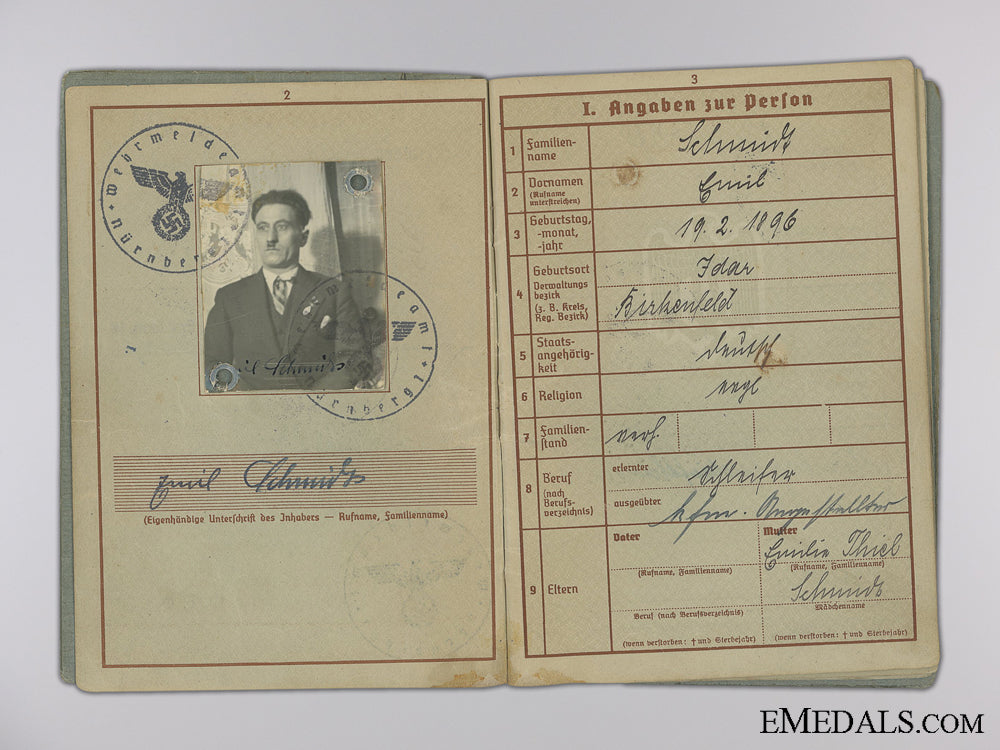 2
Wehrmeldeamt
Nürnberg 1
Wehrmeldeamt
Nürnberg 1
Emil Schmidt
Emil Schmidt
(Eigenhändige Unterschrift des Inhabers — Rufname, Familienname)
3
I. Angaben zur Person
1 Familien-
name
Schmidt
2 Vornamen
(Rufname
unterstreichen)
Emil
3 Geburtstag,
-monat,
-jahr
19. 2. 1896
4 Geburtsort
Verwaltungs
bezirk
(z. B. Kreis,
Reg. Bezirk)
Idar
Birkenfeld
5 Staats-
angehörig-
keit
deutsch
6 Religion
evgl
7 Familien-
stand
verh.
8 Beruf
(nach
Berufs-
verzeichnis)
erlernter
Schleifer
ausgeübter
kfm. Angestellter
9 Eltern
Vater
(Rufname, Familienname)
Beruf (nach Berufsverzeichnis)
(wenn verstorben: † und Sterbejahr)
Mutter
Emilie Thiel
(Rufname, Familienname)
Schmidt
Mädchenname
(wenn verstorben: † und Sterbejahr)
eMedals.com